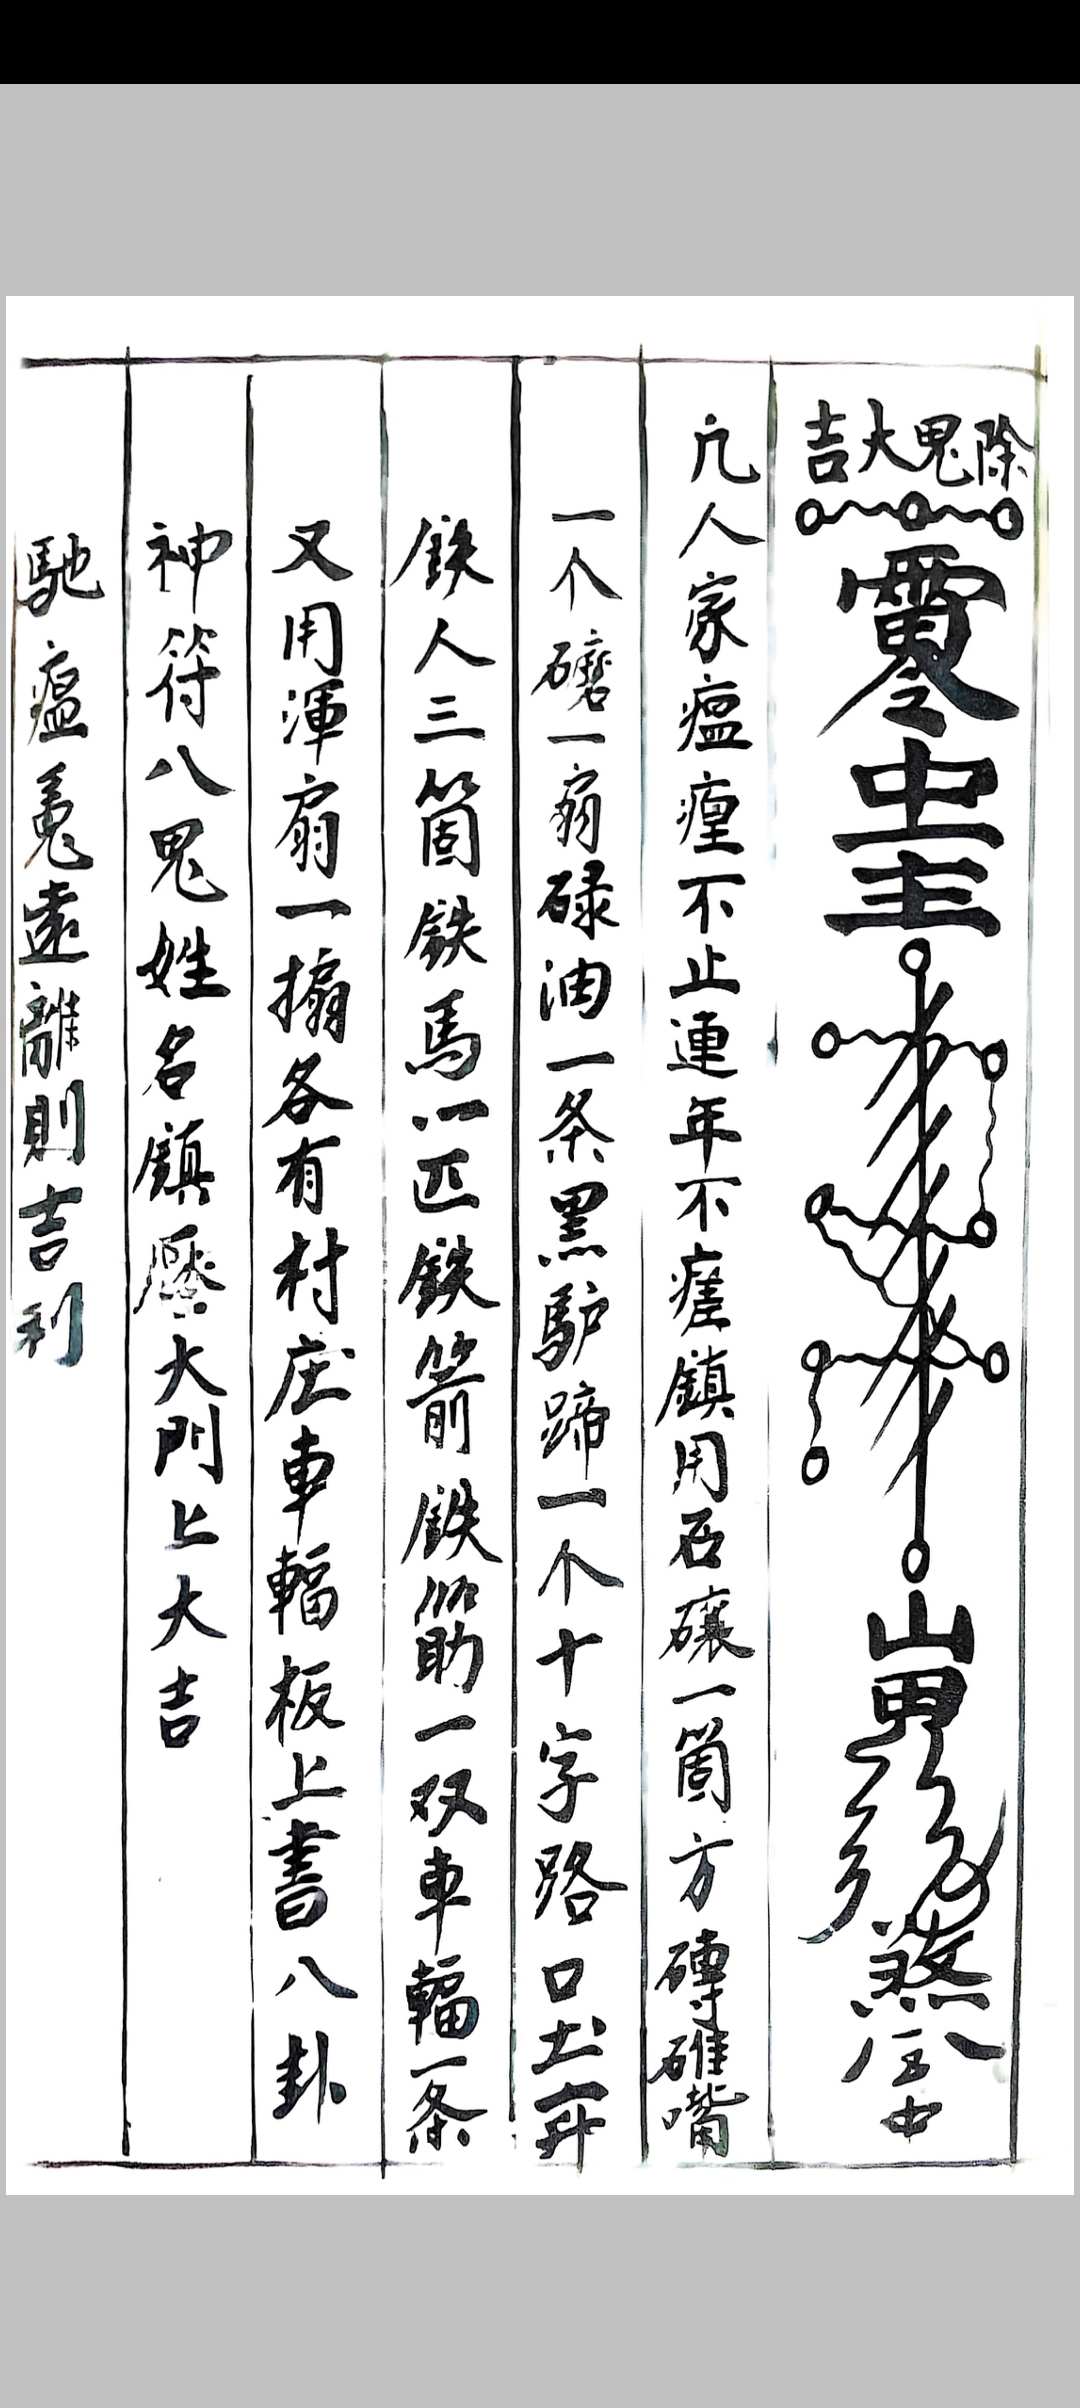 除鬼大吉
山
煞
凢人家瘟㾮不止連年不瘥鎮用石磉一箇方磚碓嘴
一个磨一扇碌油一条黑驴蹄一个十字路口土一升
鉄人三箇鉄馬一匹鉄箭鉄筋一双車輻一条
又用渾扇一搧各有村庄車輻板上書八卦
神符八鬼姓名鎮壓大門上大吉
馳瘟鬼遠離則吉利